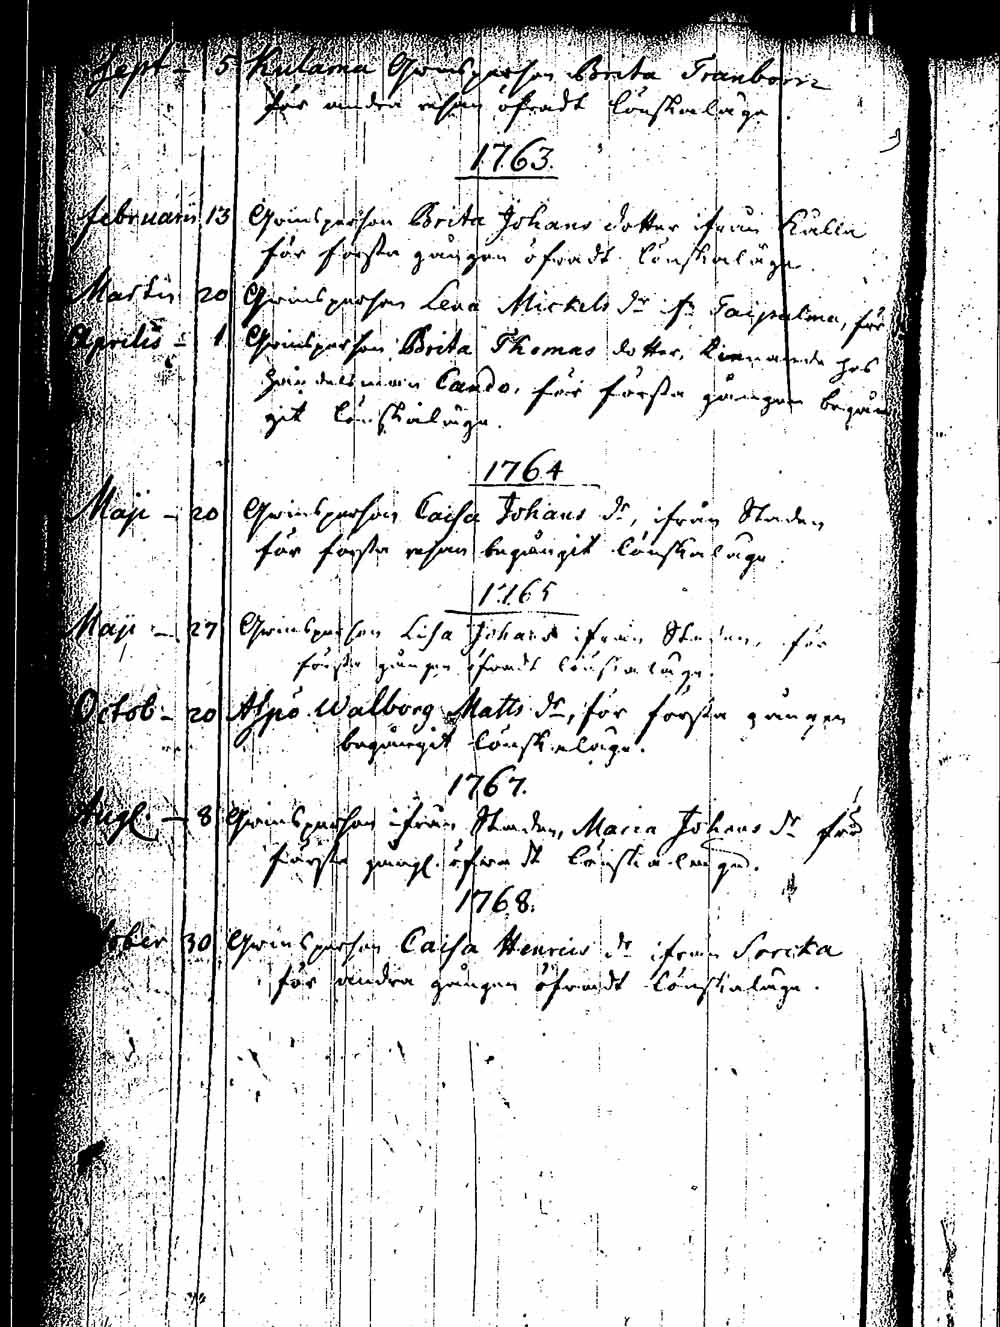 Sept - 5 Kulama Qwinsperson Brita Tranborn
för andra resan öfvadt lönskaläge.
1763.
Februarii 13 Qwinsperson Brita Johans dotter ifrån Kälila
för första gången öfvadt lönskaläge.
Martii 20 Qwinsperson Lena Mickels dr fr Taipalma, för
Aprilis - 1 Qwinsperson Brita Thomas dotter, tienande hos
Länsman Cando, för första gången begån
git lönskaläge.
1764
Maji - 20 Qwinsperson Caisa Johans dr, ifrån Staden
för första resan begångit lönskaläge.
1765
Maji - 27 Qwinsperson Lisa Johans ifrån Staden, för
första gången öfvadt lönskaläge.
Octob - 20 Walborg Matts dr, för första gången
begångit lönskaläge.
1767.
Aug. - 8 Qwinsperson ifrån Staden, Maria Johans dr för
första gång. öfvadt lönskaläge.
1768.
tober 30 Qwinsperson Caisa Henrics dr ifrån
för andra gången öfvadt lönskaläge.